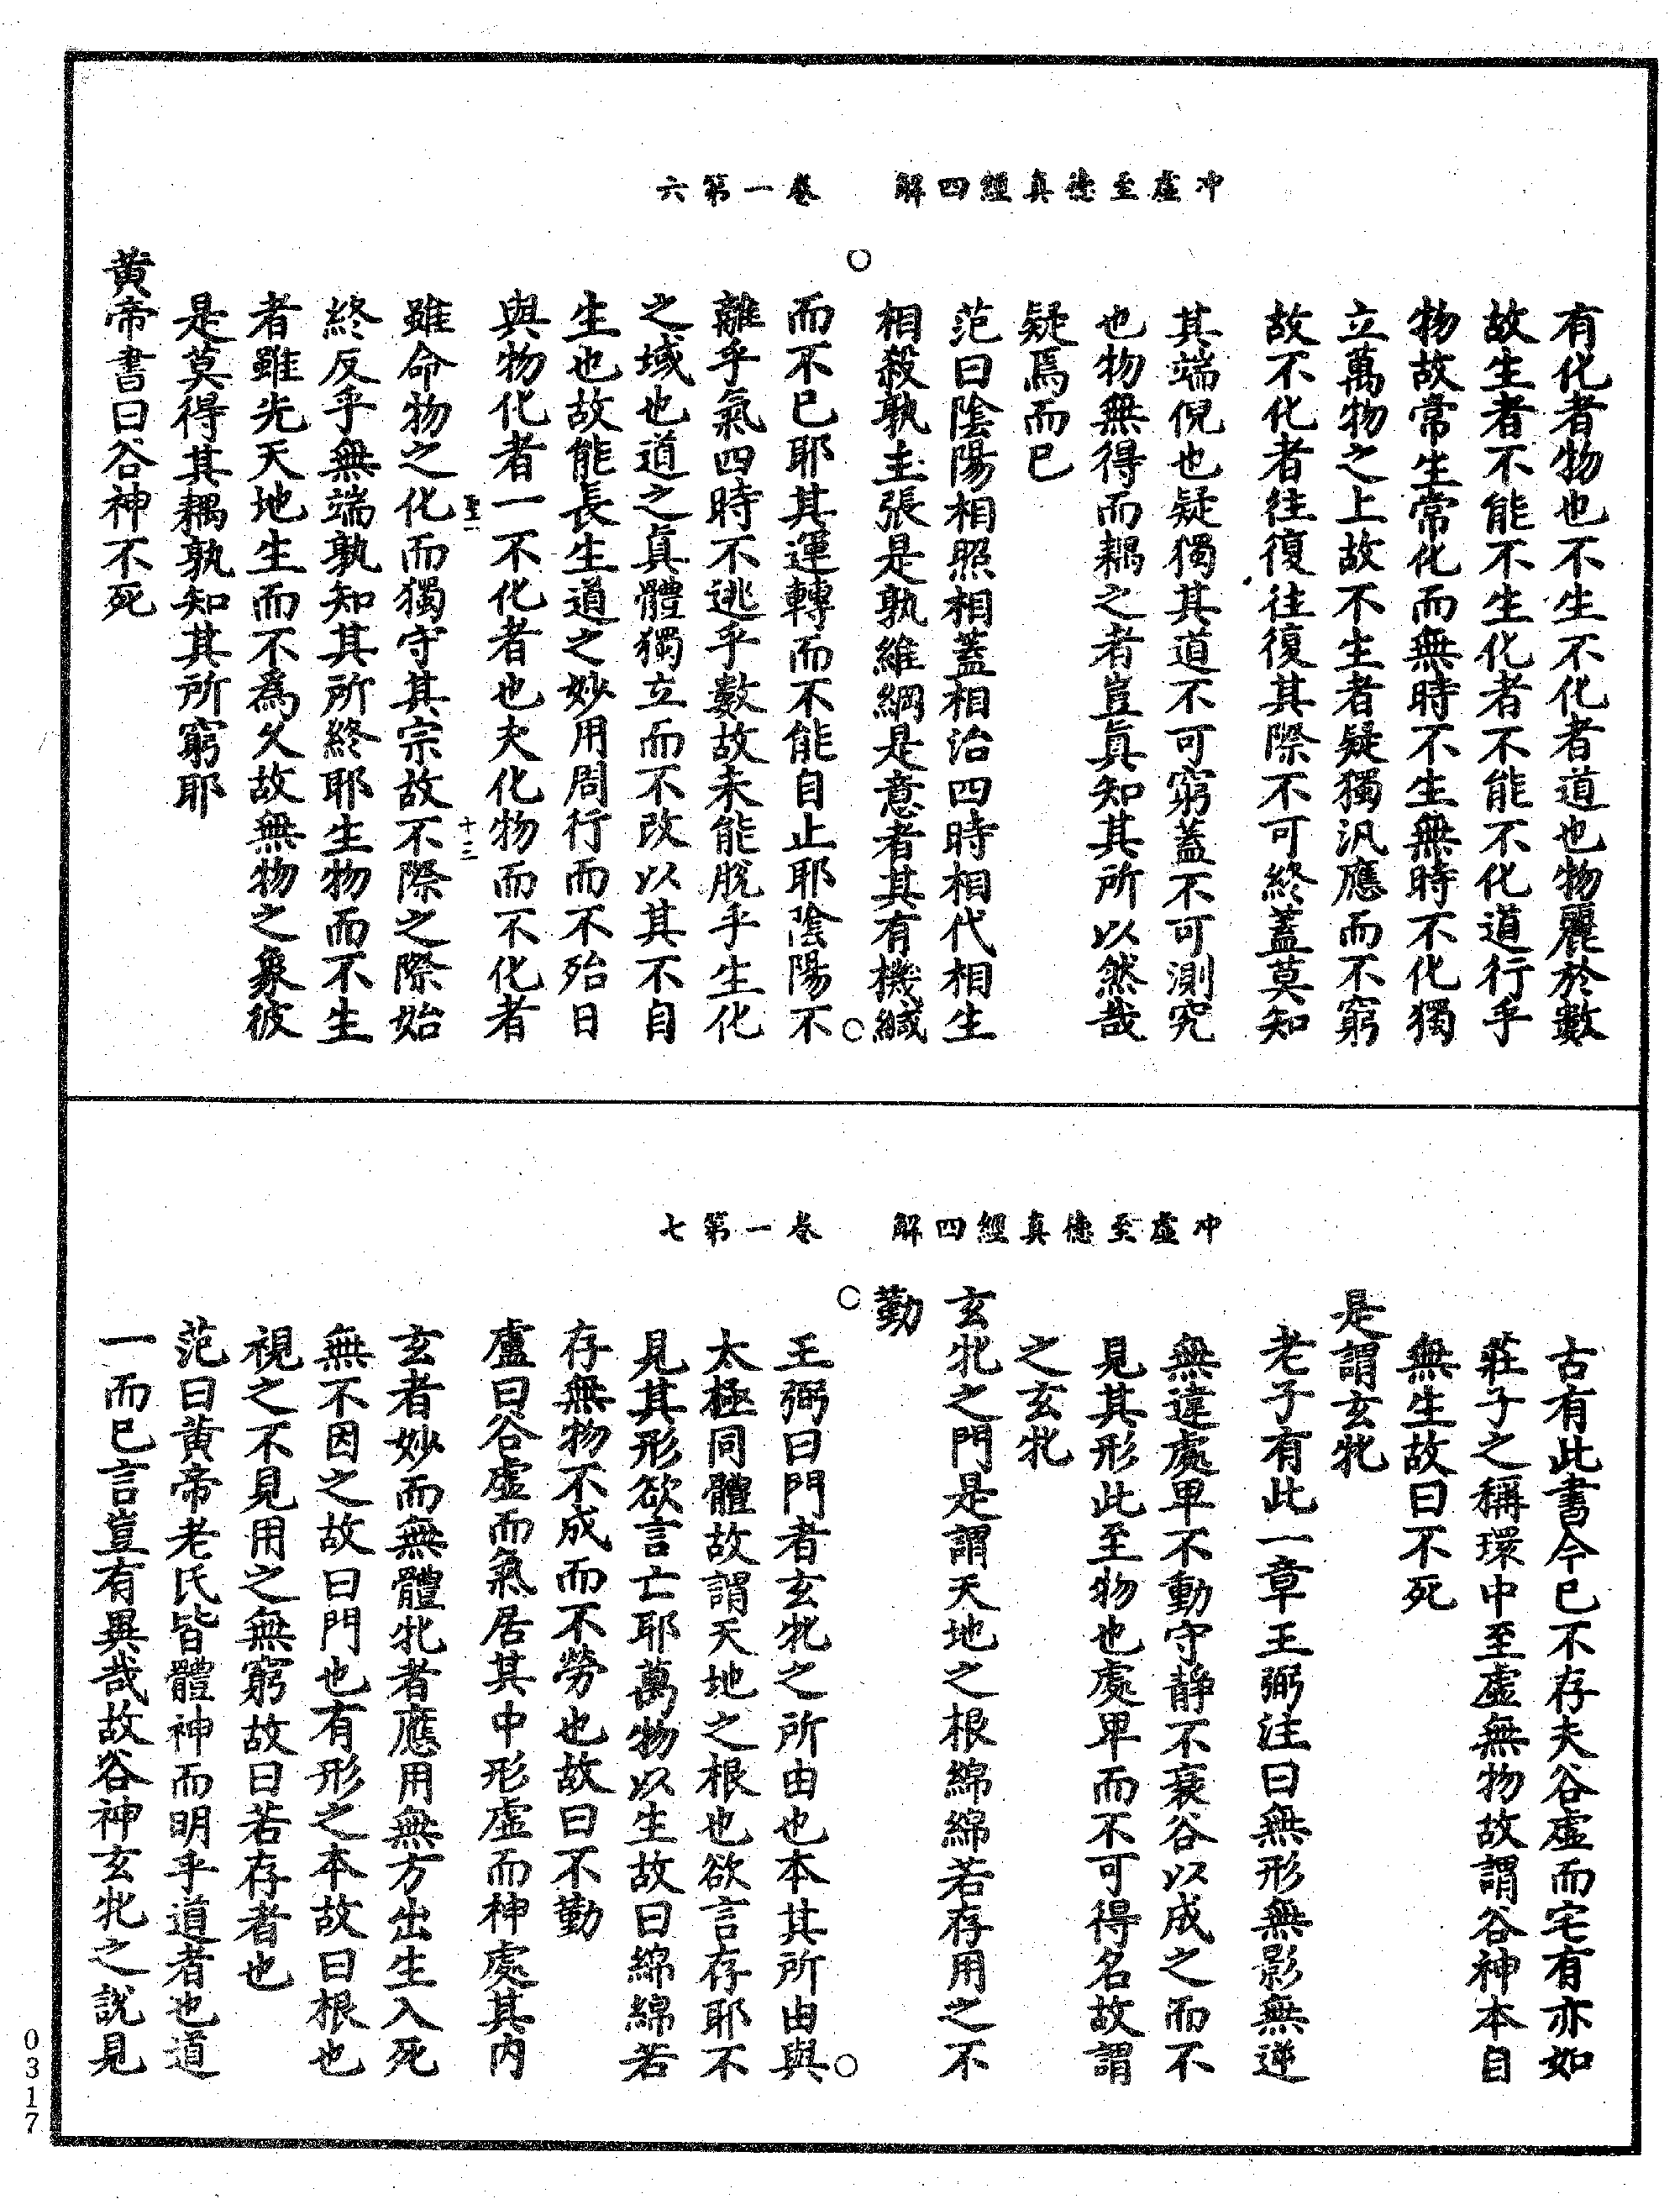 冲虛至德真經四解　卷一第六
有化者物也不生不化者道也物麗於數
故生者不能不生化者不能不化道行乎
物故常生常化而無時不生無時不化獨
立萬物之上故不生者疑獨汎應而不窮
故不化者往復往復其際不可終蓋莫知
其端倪也疑獨其道不可窮蓋不可測究
也物無得而耦之者豈真知其所以然哉
疑焉而已
范曰陰陽相照相蓋相治四時相代相生
相殺孰主張是孰維綱是意者其有機緘
而不已耶其運轉而不能自止耶陰陽不
離乎氣四時不逃乎數故未能脫乎生化
之域也道之真體獨立而不改以其不自
生也故能長生道之妙用周行而不殆日
與物化者一不化者也夫化物而不化者
聖一　十三
雖命物之化而獨守其宗故不際之際始
終反乎無端孰知其所終耶生物而不生
者雖先天地生而不為久故無物之象彼
是莫得其耦孰知其所窮耶
黃帝書曰谷神不死
冲虛至德真經四解　卷一第七
古有此書今已不存夫谷虛而宅有亦如
莊子之稱環中至虛無物故謂谷神本自
無生故曰不死
是謂玄牝
老子有此一章王弼注曰無形無影無逆
無違處卑不動守靜不衰谷以成之而不
見其形此至物也處卑而不可得名故謂
之玄牝
玄牝之門是謂天地之根綿綿若存用之不
勤
王弼曰門者玄牝之所由也本其所由與
太極同體故謂天地之根也欲言存耶不
見其形欲言亡耶萬物以生故曰綿綿若
存無物不成而不勞也故曰不勤
盧曰谷虛而氣居其中形虛而神處其內
玄者妙而無體牝者應用無方出生入死
無不因之故曰門也有形之本故曰根也
視之不見用之無窮故曰若存者也
范曰黃帝老氏皆體神而明乎道者也道
一而已言豈有異哉故谷神玄牝之說見
0317